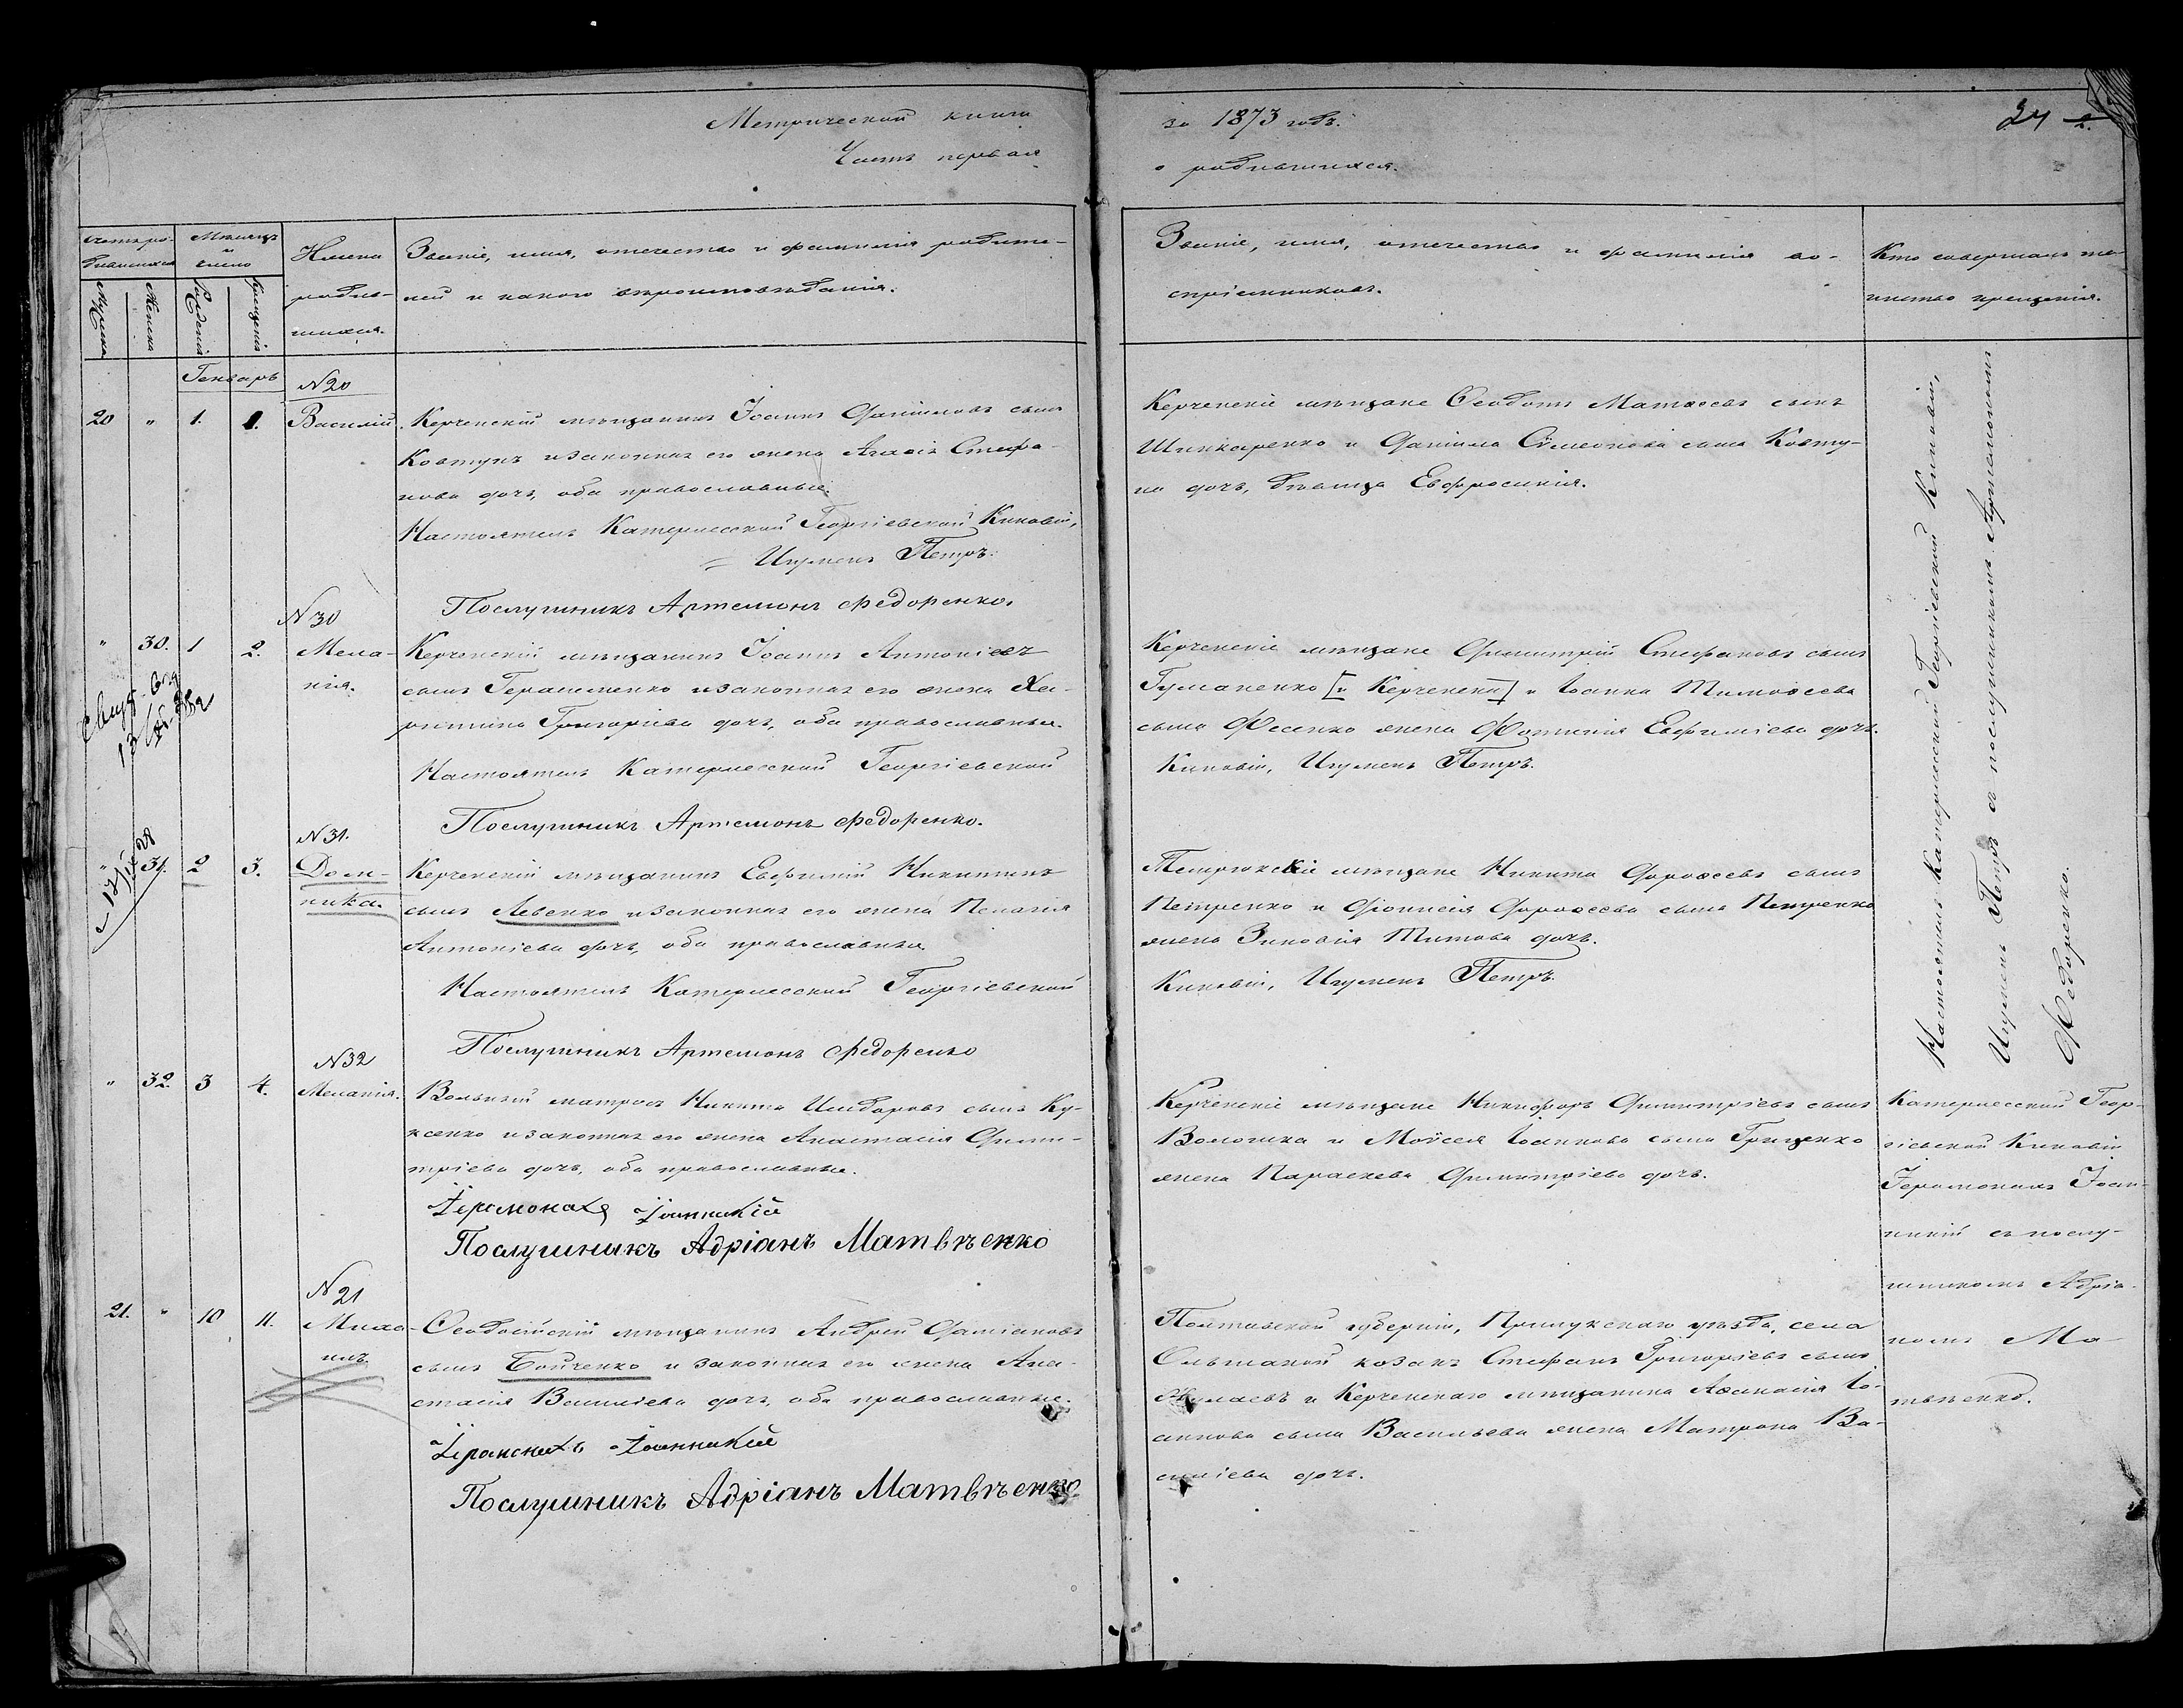 Метрической книги
Часть первая
за 1873 годъ.
о родившихся.
24
Счетъ ро-
дившихся
Мѣсяцъ
и
число
Имена
родив-
шихся.
Званіе, имя, отечество и фамилія родите-
лей и какого вѣроисповѣданія.
Званіе, имя, отечество и фамилія во-
спріемниковъ.
Кто совершалъ та-
инство крещенія.
Мужска
Женска
Рожденія
Крещенія
Генварь
№20
20 " 1. 1. Василій. Керченскій мѣщанинъ Іоаннъ Даніиловъ сынъ
Ковтунъ и законная его жена Агафія Стефа-
нова дочь, оба православные.
Настоятель Катерлесской Георгіевской Киновіи,
Игуменъ Петръ.
Послушникъ Артемонъ Федоренко.
Керченскіе мѣщане Ѳеодотъ Матѳеевъ сынъ
Шинкаренко и Даніила Сѵмеонова сына Ковту-
на дочь, дѣвица Евфросинія.
№30
" 30. 1 2. Мела-
нія.
Керченскій мѣщанинъ Іоаннъ Антоніевъ
сынъ Герасименко и законная его жена Ха-
ритина Григоріева дочь, оба православные.
Настоятель Катерлесской Георгіевской
Послушникъ Артемонъ Федоренко.
Керченскіе мѣщане Димитрій Стефановъ сынъ
Гуманенко [и Керченскій] и Іоанна Тимоѳеева
сына Фесенко жена Фотинія Евфиміева дочь.
Киновіи, Игуменъ Петръ.
№31.
" 31. 2 3. Дом-
ника.
Керченскій мѣщанинъ Евфимій Никитинъ
сынъ Левенко и законная его жена Пелагія
Антоніева дочь, оба православные
Настоятель Катерлесской Георгіевской
Послушникъ Артемонъ Федоренко
Темрюкскіе мѣщане Никита Дороѳеевъ сынъ
Петренко и Діонисія Дороѳеева сына Петренко
жена Зиновія Титова дочь.
Киновіи, Игуменъ Петръ.
Настоятель Катерлесской Георгіевской Киновіи,
Игуменъ Петръ съ послушникомъ Артемономъ
Федоренко.
№32
" 32. 3 4. Меланія.
Вольный матросъ Никита Исидоровъ сынъ Ку-
ксенко и законная его жена Анастасія Дими-
тріева дочь, оба православные.
Іеромонахъ Іоанникій
Послушникъ Адріанъ Матвѣенко
Керченскіе мѣщане Никифоръ Димитріевъ сынъ
Волошка и Моѵсея Іоаннова сына Гриценко
жена Параскева Димитріева дочь.
Катерлесской Геор-
гіевской Киновіи
Іеромонахъ Іоан-
никій съ послу-
шникомъ Адріа-
номъ Ма-
твѣенко.
№21
21. " 10 11. Миха-
илъ.
Ѳеодосійскій мѣщанинъ Андрей Даміановъ
сынъ Бойченко и законная его жена Ана-
стасія Василіева дочь, оба православные.
Іеромонахъ Іоанникій
Послушникъ Адріанъ Матвѣенко
Полтавской губерніи, Прилукскаго уѣзда, села
Ольшаной козакъ Стефанъ Григоріевъ сынъ
и Керченскаго мѣщанина Аѳанасія Іо-
аннова сына Васильева жена Матрона Ва-
силіева дочь.